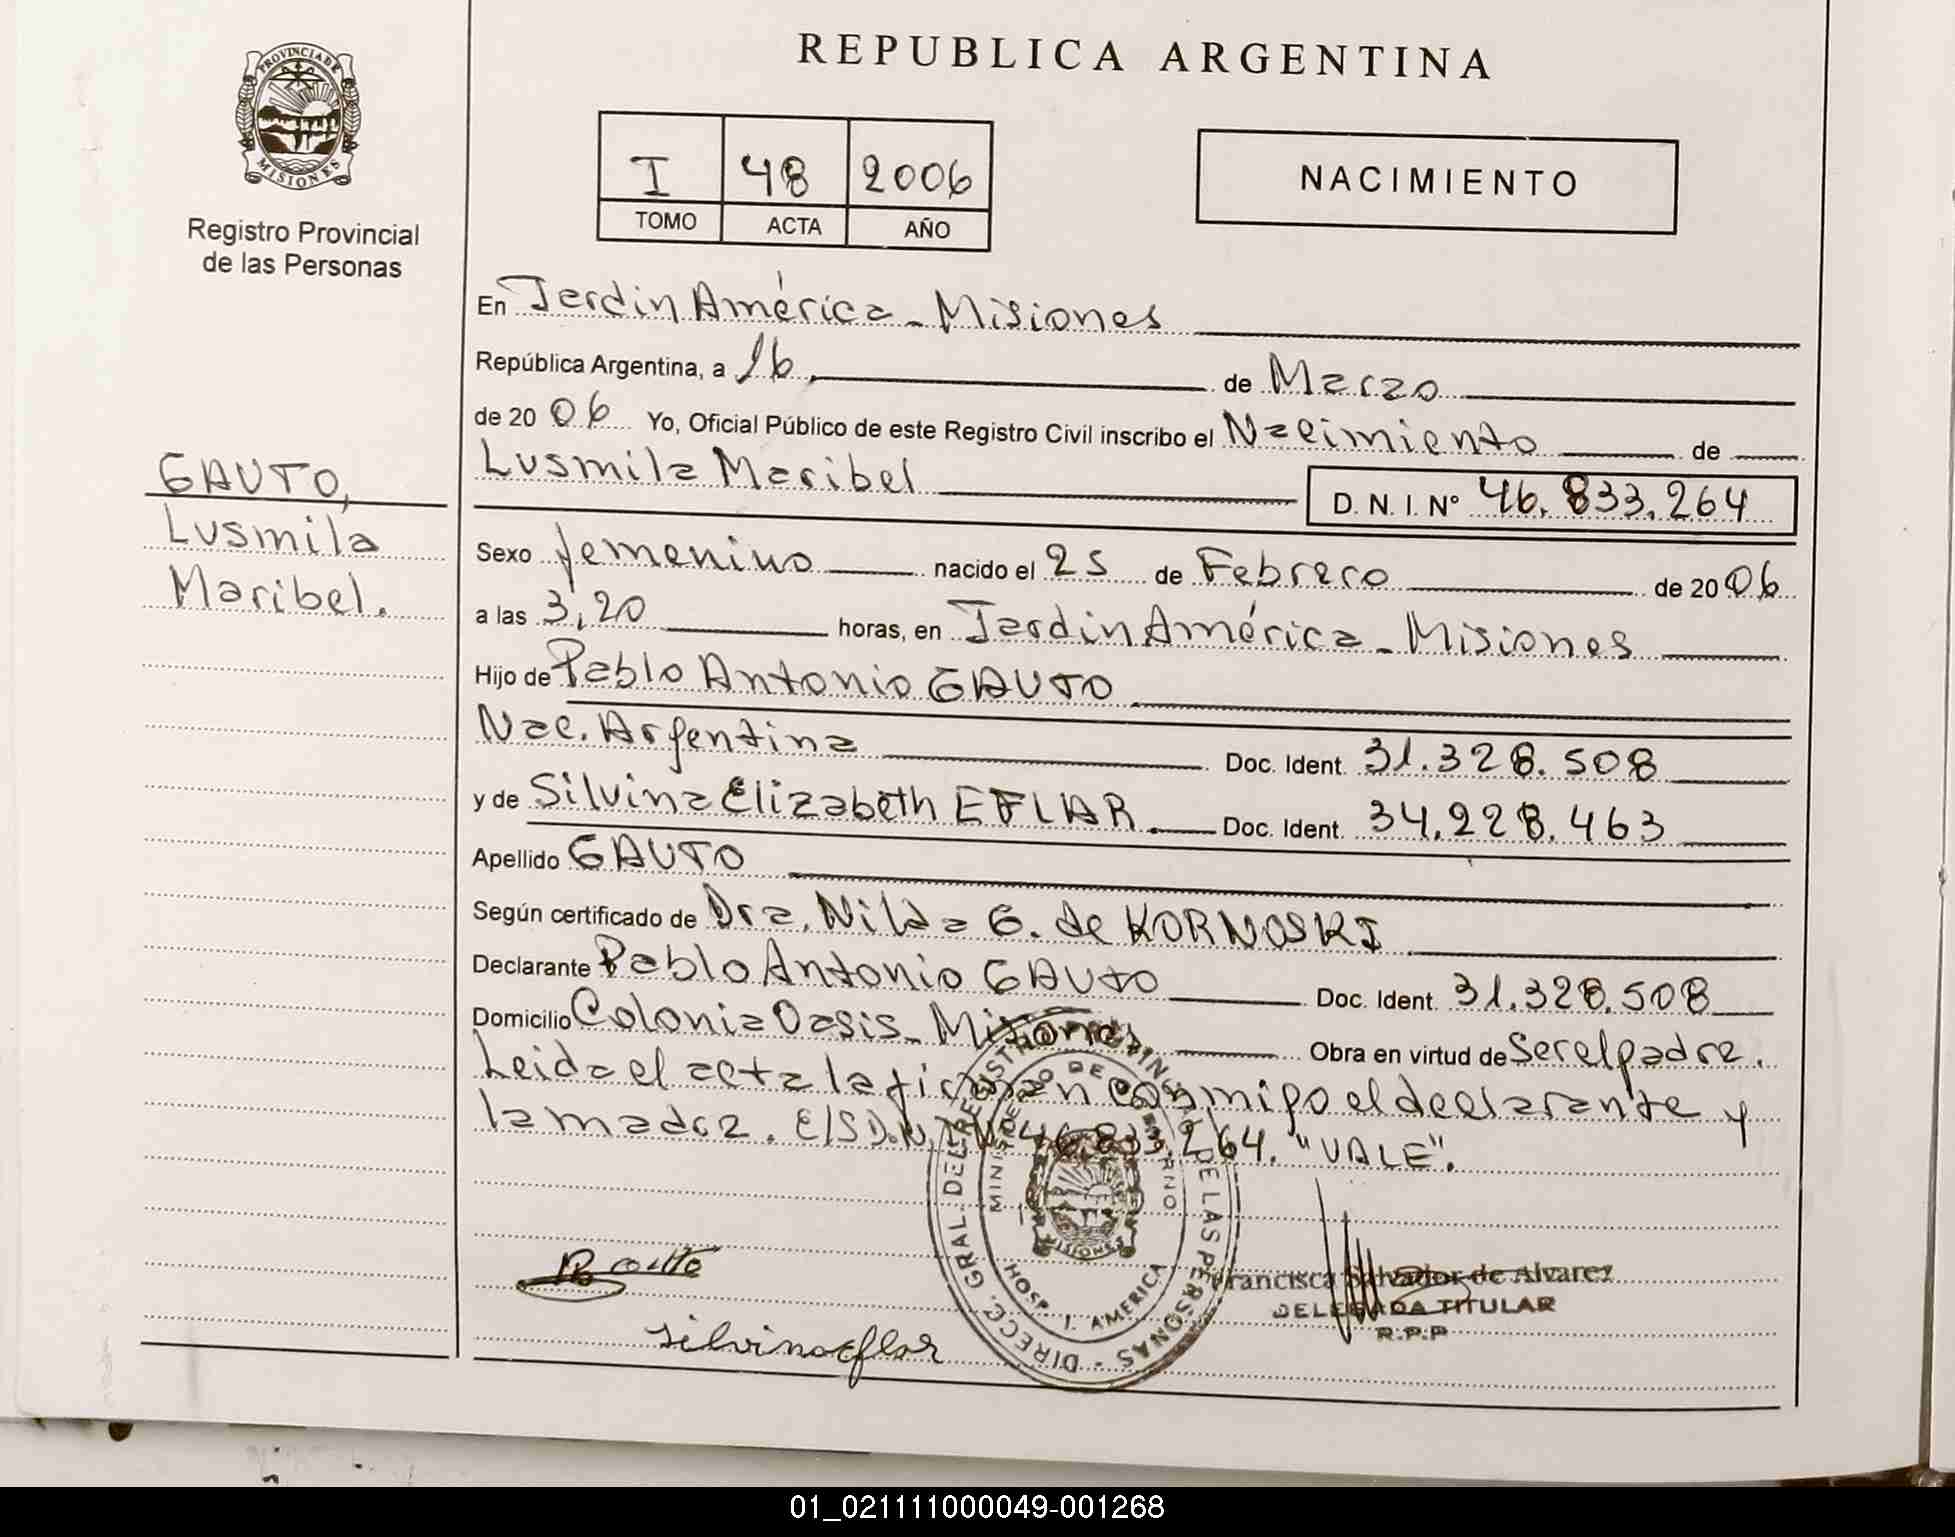 PROVINCIA DE
MISIONES
Registro Provincial
de las Personas
REPUBLICA ARGENTINA
I 48 2006
TOMO ACTA AÑO
NACIMIENTO
GAUTO,
Lusmila
Maribel.
En Jardin América - Misiones
República Argentina, a 16, de Marzo
de 2006 Yo, Oficial Público de este Registro Civil inscribo el Nacimiento de
Lusmila Maribel D. N. I. Nº 46.833.264
Sexo femenino nacido el 25 de Febrero de 2006
a las 3,20 horas, en Jardin América - Misiones
Hijo de Pablo Antonio GAUTO
Nac. Argentina Doc. Ident. 31.328.508
y de Silvina Elizabeth EFLAR Doc. Ident. 34.228.463
Apellido GAUTO
Según certificado de Dra. Nilda G. de KORNOSKI
Declarante Pablo Antonio GAUTO Doc. Ident. 31.328.508
Domicilio Colonia Oasis - Misiones Obra en virtud de Ser el padre.
Leida el acta la firman conmigo el declarante y
la madre. E/S D.N.I. Nº 46.833.264. "VALE".
DIRECC. GRAL. DEL REGISTRO PROVINCIAL DE LAS PERSONAS
MINISTERIO DE GOBIERNO
MISIONES
HOSP. J. AMERICA
silvina eflar
Francisca Salvador de Alvarez
DELEGADA TITULAR
R.P.P
01_021111000049-001268